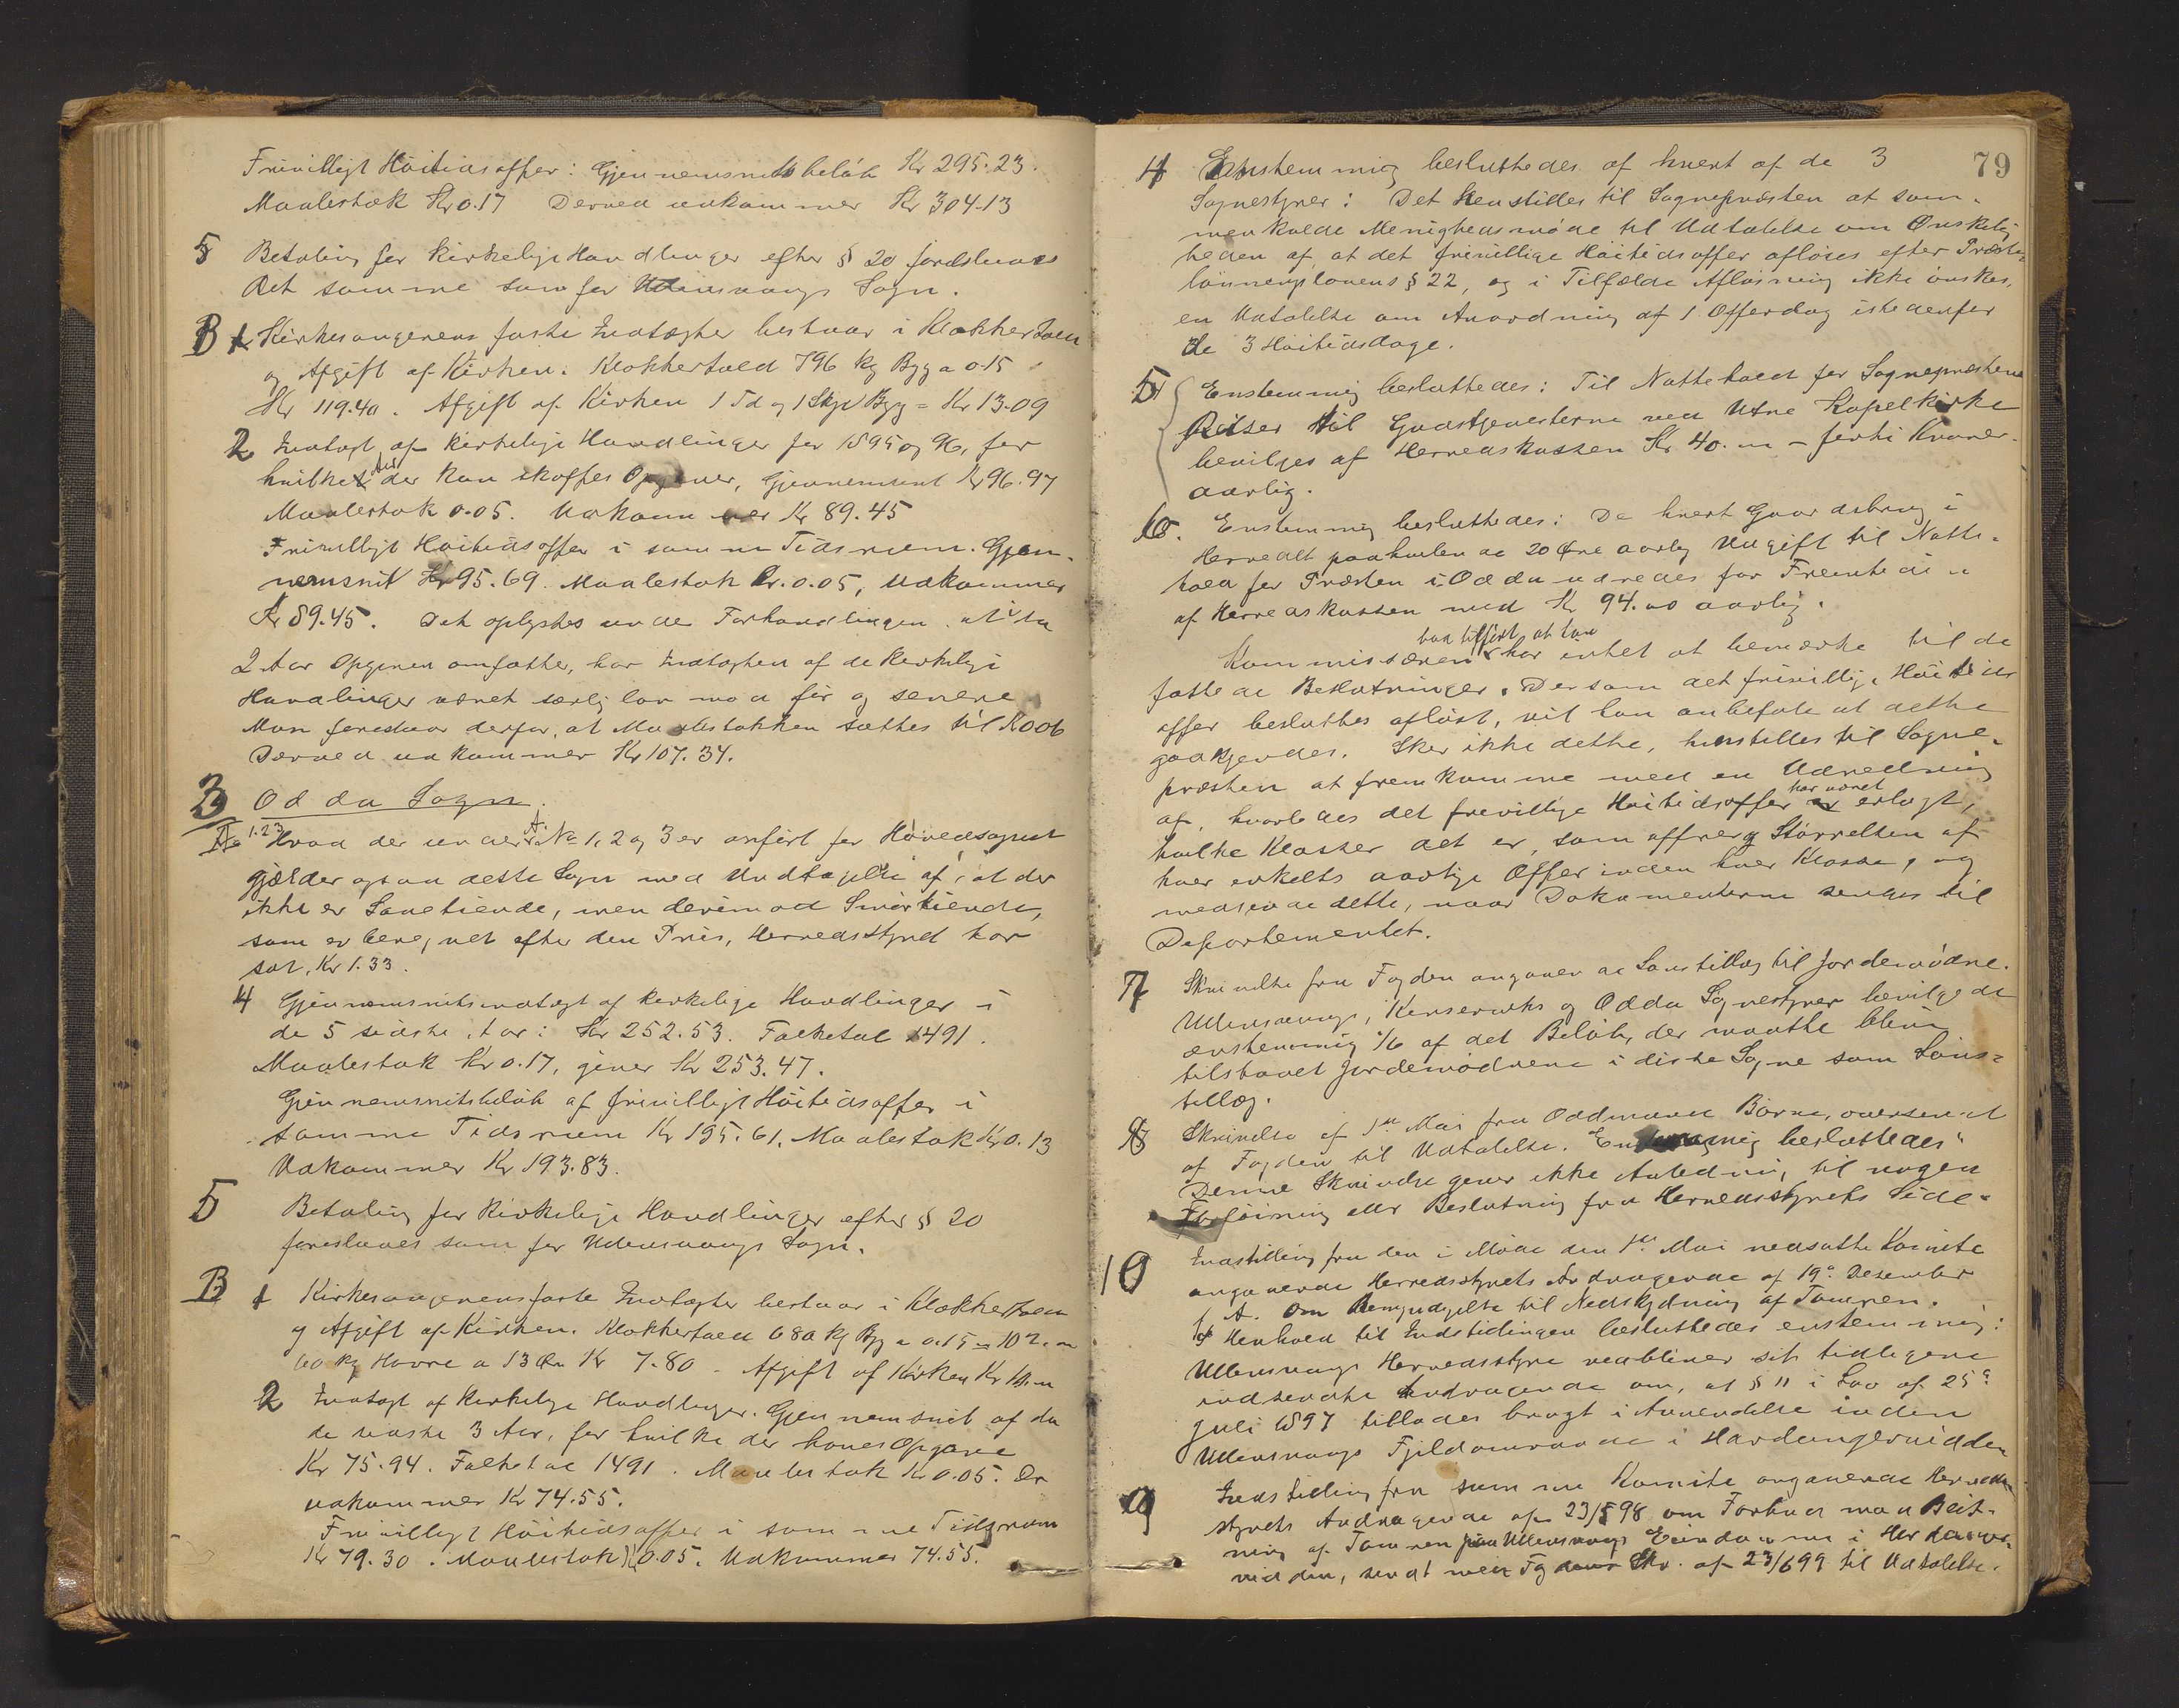 Frivilligt Höitidsoffer: Gjennemsnitsbelöb Kr 295.23.
Maalestok Kr 0.17 Derved udkommer Kr 304.13
5 Betaling for kirkelige Handlinger efter § 20 foreslaaes
Det samme som for Ullensvangs Sogn.
B 1 Kirkesangerens faste Indtægter bestaar i Klokkertold
og Afgift af Kirken. Klokkertold 796 kg Byg a 0.15
Kr 119.40. Afgift af Kirken 1 Td og 1 Skp Byg = Kr 13.09
2 Indtægt af kirkelige Handlinger for 1895 og 96, for
hvilke Aar der kan skaffes Opgaver, Gjennemsnit Kr 96.97
Maalestok 0.05. Udkommer Kr 89.45
Frivilligt Höitidsoffer i samme Tidsrum. Gjen-
nemsnit Kr 95.69. Maalestok Kr. 0.05, Udkommer
Kr 89.45. Det oplystes under Forhandlingen at i de
2 Aar Opgaven omfatter, har Indtægten af de kirkelige
Handlinger været særlig lav mod för og senere
Man foreslaar derfor, at Maalestokken sættes til K 0 06
Derved udkommer Kr 107.34.
3 Odda Sogn.
A 1.2.3 Hvad der under A. No 1, 2 og 3 er anfört for Hovedsognet
gjælder ogsaa dette Sogn med Undtagelse af, at der
ikke er Lauetiende, men derimod Smörtiende,
som er beregnet efter den Pris, Herredsstyret har
sat, Kr 1.33.
4 Gjennemsnitsindtægt af kirkelige Handlinger i
de 5 sidste Aar: Kr 252.53. Folketal 1491.
Maalestok Kr 0.17, giver Kr 253.47.
Gjennemsnitsbelöb af frivilligt Höitidsoffer i
samme Tidsrum Kr 195.61. Maalestok Kr 0.13
Udkommer Kr 193.83.
5 Betaling for kirkelige Handlinger efter § 20
foreslaaes som for Ullensvangs Sogn.
B 1 Kirkesangerens faste Indtægter bestaar i Klokkertold
og Afgift af Kirken. Klokkertold 680 kg Byg a 0.15 = 102.00
60 kg Havre a 13 Öre Kr 7.80 - Afgift af Kirken Kr
2 Indtægt af kirkelige Handlinger. Gjennemsnit af de
de sidste 3 Aar, for hvilke der haves Opgave
Kr 75.94. Folketal 1491. Maalestok Kr 0.05. Der
udkommer Kr 74.55.
Frivilligt Höitidsoffer i samme Tidsrum
Kr 79.30. Maalestok K 0.05. Udkommer 74.55.
79
4 Enstemmig besluttedes af hvert af de 3
Sognestyrer: Det henstilles til Sognepræsten at sam-
menkalde Menighedsmöde til Udtalelse om Önskelig-
heden af, at det frivillige Höitidsoffer aflöses efter Præste-
lönningslovens § 22, og i Tilfælde Aflösning ikke önskes,
en Udtalelse om Anordning af 1 Offerdag istedenfor
de 3 Höitidsdage.
5 Enstemmig besluttedes: Til Nattehold for Sognepræstens
Reiser til Gudstjenesterne ved Utne Kapelkirke
bevilges af Herredskassen Kr 40.00 - forti Kroner-
aarlig.
6. Enstemmig besluttedes: De hvert Gaardsbrug i
Herredet paahvilende 20 Öre aarlig Udgift til Natte-
hold for Præsten i Odda udredes for Fremtiden
af Herredskassen med Kr 94.00 aarlig.
Kommissæren bad tilfört at han har intet at bemærke til de
fattede Beslutninger. Dersom det frivillige Höitids
offer besluttes aflöst, vil han anbefale at dette
godkjendes. Sker ikke dette, henstilles til Sogne-
præsten at fremkomme med en Udredning
af, hvorledes det frivillige Höitidsoffer har været erlagt,
hvilke Klasser det er, som offrer og Störrelsen af
hver enkelts aarlige Offer inden hver Klasse, og
medsende dette, naar Dokumenterne sendes til
Departementet.
7 Skrivelse fra Fogden angaaende Lönstillæg til Jordemödre.
Ullensvangs, Kinserviks og Odda Sognestyrer bevilgede
enstemmig 1/6 af det Belöb, der maatte blive
tilstaaet Jordemödrene i disse Sogne som Löns-
tillæg.
8 Skrivelse af 1ste Mai fra Oddmund Börve, oversendt
af Fogden til Udtalelse. Enstemmig besluttedes:
Denne Skrivelse giver ikke Anledning til nogen
Tilföining eller Beslutning fra Herredsstyrets Side.
10 Indstilling fra den i Möde den 1ste Mai nedsatte Komite
angaaende Herredsstyrets Andragende af 19de Desember
f. A. om Bemyndigelse til Nedskydning af Tamren.
I Henhold til Indstillingen besluttedes enstemmig:
Ullensvangs Herredsstyre vedbliver sit tidligere
indsendte Andragende om, at § 11 i Lov af 25de
Juli 1897 tillades bragt i Anvendelse inden
Ullensvangs Fjeldomraade i Hardangervidden
9 Indstilling fra samme Komite angaaende Herreds-
styrets Andragende af 23/5 98 om Forbud mod Beit-
ning af Tamren paa Ullensvangs Eiendomme i Hardanger-
vidden, sendt med Fogdens Skr. af 23/6 99 til Udtalelse.